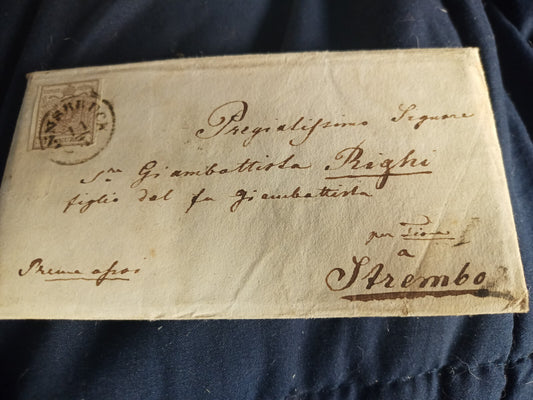 INNSBRUCK
Pregiatissimo Signore
Sr̃e Giambattista Righi
figlio del fu Giambattista
per Tione
a
Strembo